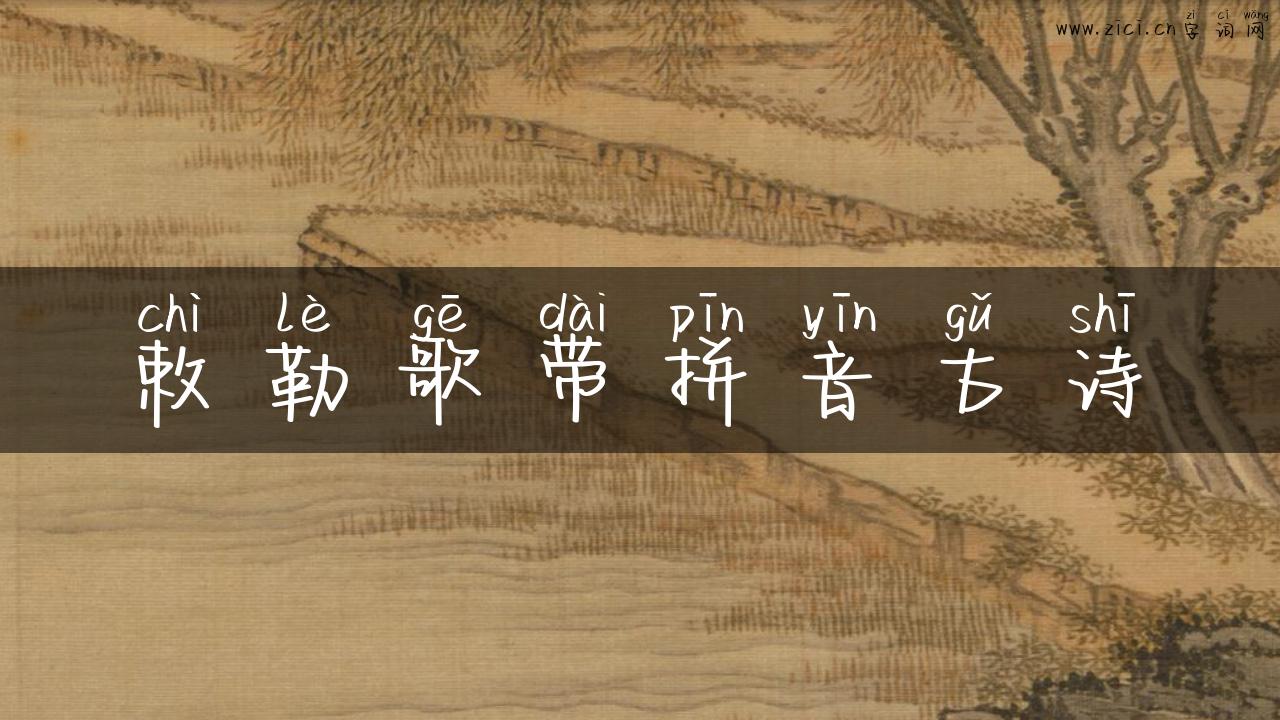 zì cí wǎng
www.zici.cn字词网
chì lè gē dài pīn yīn gǔ shī
敕勒歌带拼音古诗